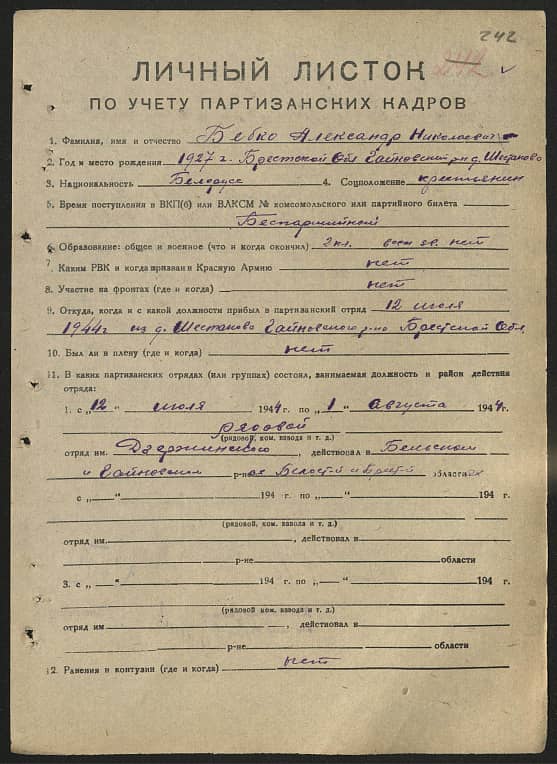 242
ЛИЧНЫЙ ЛИСТОК
ПО УЧЕТУ ПАРТИЗАНСКИХ КАДРОВ
1. Фамилия, имя и отчество Бебко Александр Николаевич
2. Год и место рождения 1927 г. Брестской Обл Гайновский р-н д. Шестаково
3. Национальность Белорусс 4. Соцположение крестьянин
5. Время поступления в ВКП(б) или ВЛКСМ № комсомольского или партийного билета
Беспартийной
6. Образование: общее и военное (что и когда окончил) 2 кл. воен зв. нет
7. Каким РВК и когда призван в Красную Армию нет
8. Участие на фронтах (где и когда) нет
9. Откуда, когда и с какой должности прибыл в партизанский отряд 12 июля
1944 г из д. Шестаково Гайновского р-но Брестской Обл.
10. Был ли в плену (где и когда) нет
11. В каких партизанских отрядах (или группах) состоял, занимаемая должность и район действия
отряда:
1. с „12“ июля 1944 г. по „1“ августа 1944 г.
рядовой
(рядовой, ком. взвода и т. д.)
отряд им. Дзержинского, действовал в Бельском
и Гайновском р-не Белост-й и Брест-й областях
с „ “ 194 г. по „ “ 194 г.
(рядовой, ком. взвода и т. д.)
отряд им. , действовал в
р-не области
3. с „ “ 194 г. по „ “ 194 г.
(рядовой ком. взвода и т. д.)
отряд им , действовал в
р-не области
12. Ранения и контузии (где и когда) нет